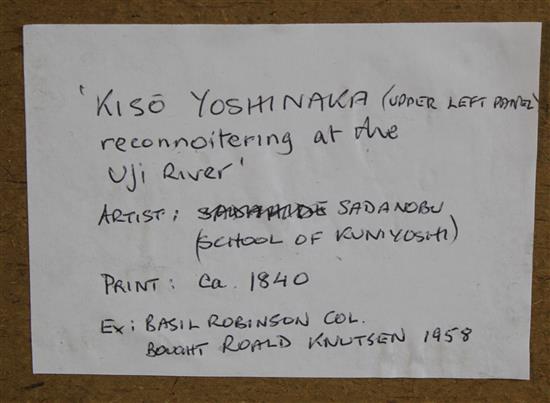 'KISŌ YOSHINAKA (UPPER LEFT PANEL)
reconnoitering at the
Uji River'
ARTIST: SADANOBU
(SCHOOL OF KUNIYOSHI)
PRINT: Ca. 1840
Ex: BASIL ROBINSON COL.
BOUGHT ROALD KNUTSEN 1958